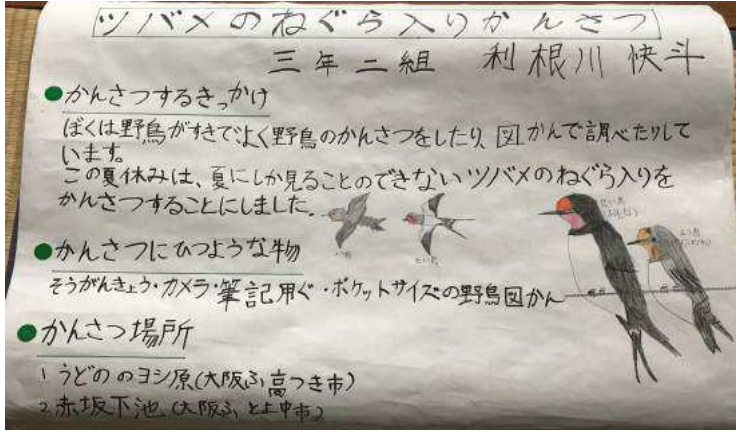 ツバメのねぐら入りかんさつ
三年二組 利根川快斗
●かんさつするきっかけ
ぼくは野鳥がすきでよく野鳥のかんさつをしたり、図かんで調べたりして
います。
この夏休みは、夏にしか見ることのできないツバメのねぐら入りを
かんさつすることにしました。
●かんさつにひつような物
そうがんきょう・カメラ・筆記用ぐ・ポケットサイズの野鳥図かん
●かんさつ場所
1.うどののヨシ原(大阪ふ高つき市)
2.赤坂下池(大阪ふとよ中市)